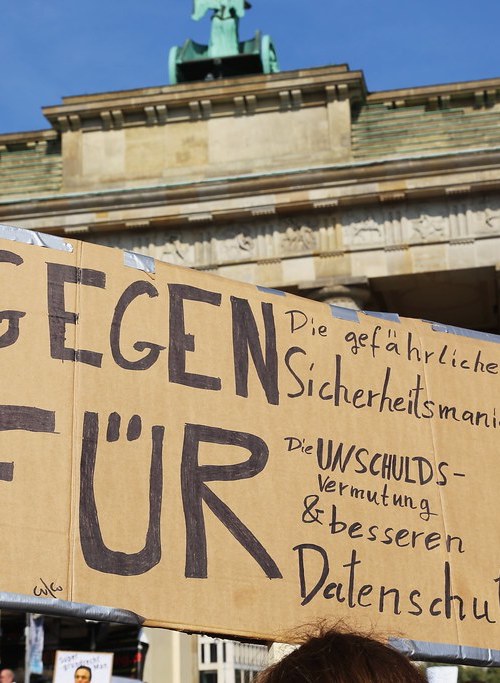 GEGEN
Die gefährliche
Sicherheitsmani
FÜR
Die UNSCHULDS-
vermutung
& besseren
Datenschu
3/3
Super
Man